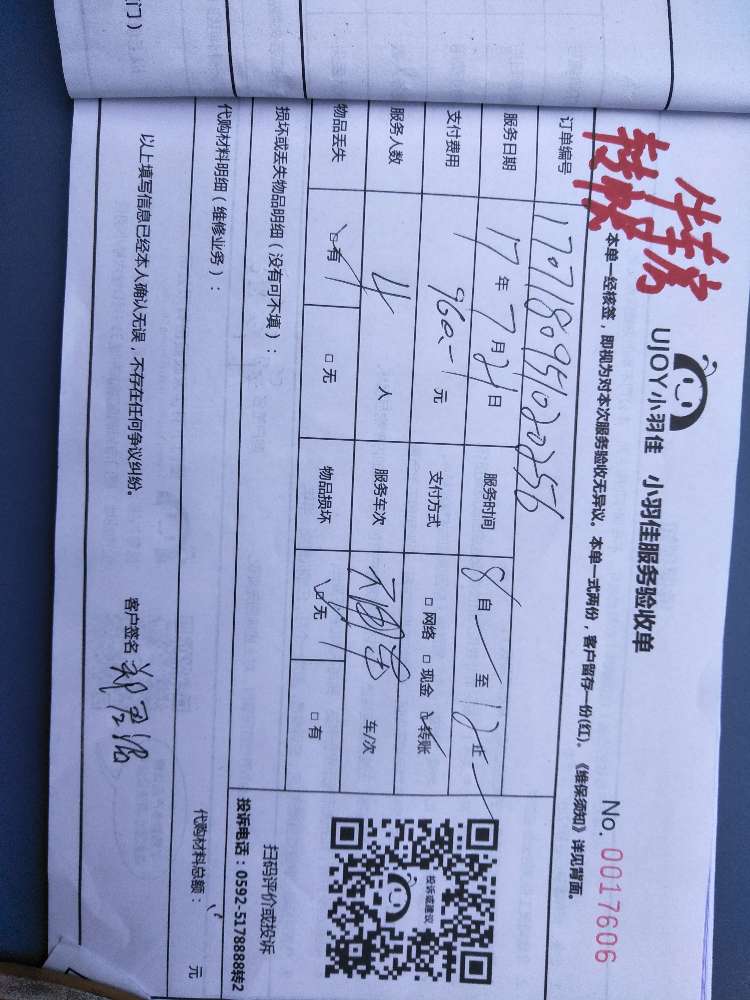 UJOY小羽佳 小羽佳服务验收单
No. 0017606
转帐
本单一经核签，即视为对本次服务验收无异议。本单一式两份，客户留存一份(红)。《维保须知》详见背面。
订单编号 170718095102256
服务日期 17 年 7 月 21 日 服务时间 8 自 至 12 止
支付费用 960.- 元 支付方式 □ 网络 □ 现金 ☑ 转账
服务人数 4 人 服务车次 车/次
物品丢失 □ 有 □ 无 物品损坏 □ 无 □ 有
投诉或建议
扫码评价或投诉
投诉电话：0592-5178888转2
损坏或丢失物品明细（没有可不填）：
代购材料明细（维修业务）：
代购材料总额： 元
以上填写信息已经本人确认无误，不存在任何争议纠纷。
客户签名
门）